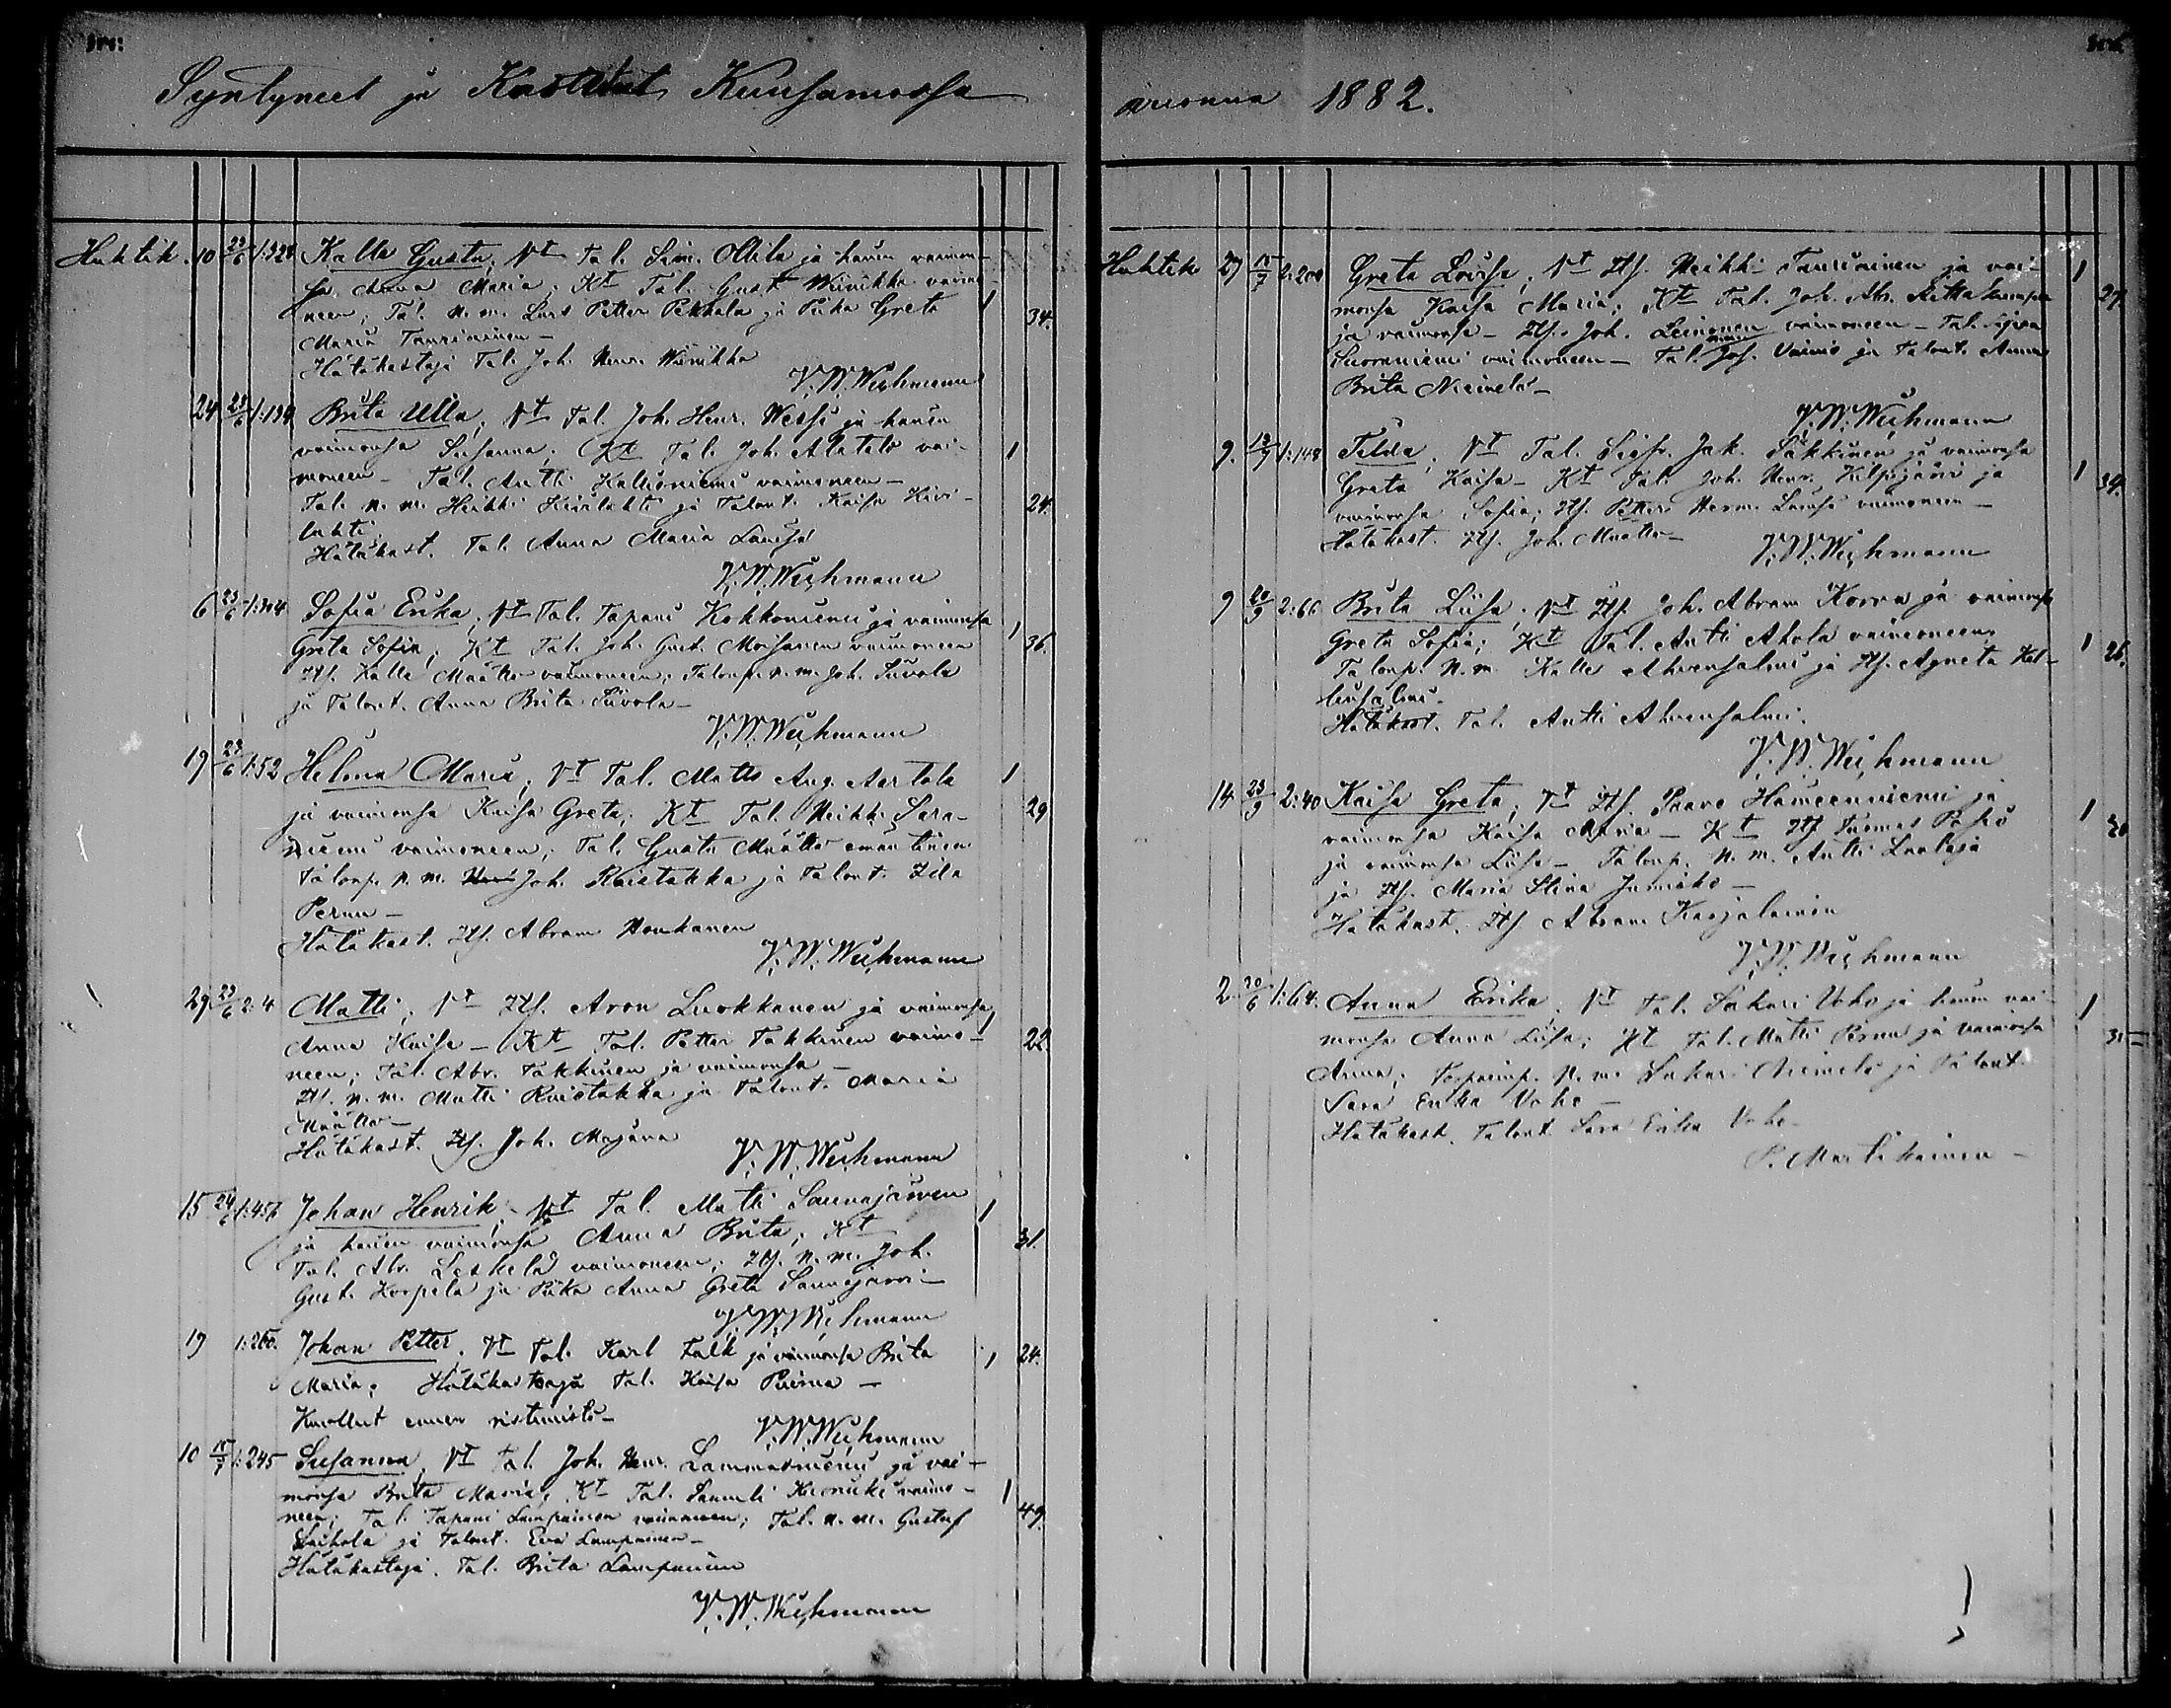 Syntyneet ja Kastetut Kuusamossa
Huhtik. 10 23/6 1:328 Kalle Gusta, Vt Tal. Sim. Ollila ja hänen vaimon-
sa Anna Maria; Kt Tal. Gust. Wiinikka vaimo- 1
neen; Tal. n. m. Lars Petter Pekkala ja Piika Greta 34.
Maria Tauriainen –
Hätäkastaja Tal. Joh. Henr. Wiinikka
V. W. Wichmann
24 23/6 1:139 Brita Ulla, Vt Tal. Joh. Henr. Wessi ja hänen
vaimonsa Susanna; Kt Tal. Joh. Alatalo vai- 1
moneen – Tal. Antti Kallioniemi vaimoneen –
Tal. n. m. Heikki Kivilahti ja Talont. Kaisa Kivi- 24.
lahti;
Hätäkast. Tal. Anna Maria
V. W. Wichmann
6 23/6 1:304 Sofia Erika, Vt Tal. Tapani Kokkoniemi ja vaimonsa 1
Greta Sofia; Kt Tal. Joh. Gust. Moisanen vaimoneen 36.
Its. Kalle Määttä vaimoneen; Talonp. n. m. Joh. Siivola
ja Talont. Anna Brita Siivola –
V. W. Wichmann
19 23/6 1:52 Helena Maria, Vt Tal. Matts Aug. Aartola 1
ja vaimonsa Kaisa Greta; Kt Tal. Heikki Sara- 29
niemi vaimoneen; Tal. Gusta Määttä emäntineen
Talonp. n. m. Joh. Raistakka ja Talont. Iida
Pernu –
Hätäkast. Its. Abram Honkanen
V. W. Wichmann
29 23/6 2:4 Matti, Vt Its. Aron Luokkanen ja vaimonsa 1
Anna Kaisa – Kt Tal. Petter Takkinen vaimo- 22.
neen; Tal. Abr. Takkinen ja vaimonsa –
Its. n. m. Matti Raistakka ja Talont. Maria
Määttä –
Hätäkast. Its. Joh. Mojana
V. W. Wichmann
15 24/6 1:456 Johan Henrik, Vt Tal. Matti Saunajärven 1
ja hänen vaimonsa Anna Brita; Kt 31.
Tal. Abr. Leskelä vaimoneen; Its. n. m. Joh.
Gust. Korpela ja Piika Anna Greta Saunajärvi –
V. W. Wichmann
19 1:260. Johan Petter, Vt Tal. Karl Falk ja vaimonsa Brita 1 24.
Maria; Hätäkastaja Tal. Kaisa –
Kuollut ennen ristimistä –
V. W. Wichmann
10 15/7 1:245 Susanna, Vt Tal. Joh. Henr. Lammasniemi ja vai-
monsa Brita Maria; Kt Tal. Samuli vaimo- 1
neen; Tal. Tapani Lampainen vaimoneen; Tal. n. m. Gustaf 49.
ja Talont. Eva Lampainen –
Hätäkastaja. Tal. Brita Lampainen
V. W. Wichmann
vuonna 1882.
Huhtik 27 15/7 2:200 Greta Lovisa, Vt Its. Heikki Tauriainen ja vai- 1
monsa Kaisa Maria; Kt Tal. Joh. Abr. 27.
ja vaimonsa – Its. Joh. Leinonen vaimoneen – Tal.
Suoraniemi vaimoneen – Tal. Jos. Vainio ja Talont. Anna
Brita Niemelä –
V. W. Wichmann
9. 1:148 Tilda, Vt Tal. Sigfr. Jak. Säkkinen ja vaimonsa
Greta Kaisa – Kt Tal. Joh. Henr. Kilpijärvi ja 1 34.
vaimonsa Sofia; Its. Petter Herm. vaimoneen –
Hätäkast. Its. Joh. Määttä –
V. W. Wichmann
9 20/9 2:66. Brita Liisa, Vt Its. Joh. Abram Korva ja vaimonsa
Greta Sofia; Kt Tal. Antti Ahola vaimoneen, 1 26.
Talonp. n. m. Kalle Ahvensalmi ja Its. Agneta
Hätäkast. Tal. Antti Ahvensalmi.
V. W. Wichmann
14 23/9 2:40 Kaisa Greta, Vt Its. Paavo Hämeenniemi ja
vaimonsa Kaisa Maria – Kt Its. Tuomas Posio 1 30
ja vaimonsa Liisa – Talonp. n. m. Antti
ja Its. Maria Stina Jumisko –
Hätäkast. Its. Abram Karjalainen
V. W. Wichmann
2 30/6 1:64. Anna Erika, Vt Tal. Sakari Veho ja hänen vai- 1
monsa Anna Liisa; Kt Tal. Matti Pernu ja vaimonsa 31
Anna; n. m. Sakari Niemelä ja Talont.
Sara Erika Veho –
Hätäkast. Talont. Sara Erika Veho –
P. Martikainen –